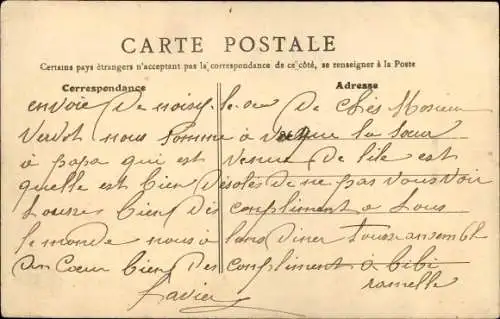 CARTE POSTALE
Certains pays étrangers n'acceptant pas la correspondance de ce côté, se renseigner à la Poste
Correspondance
Adresse
envoie de noisy-le-sec De chès Mosieu
Verdot nous somme a la Sœur
a papa qui est venue De lile est
quelle est bien Désolés de ne pas vous voir
bien Dès compliment a Tous
le monde nous a Diner Tousse ansembl
bien Des compliment à bibi
ramelle